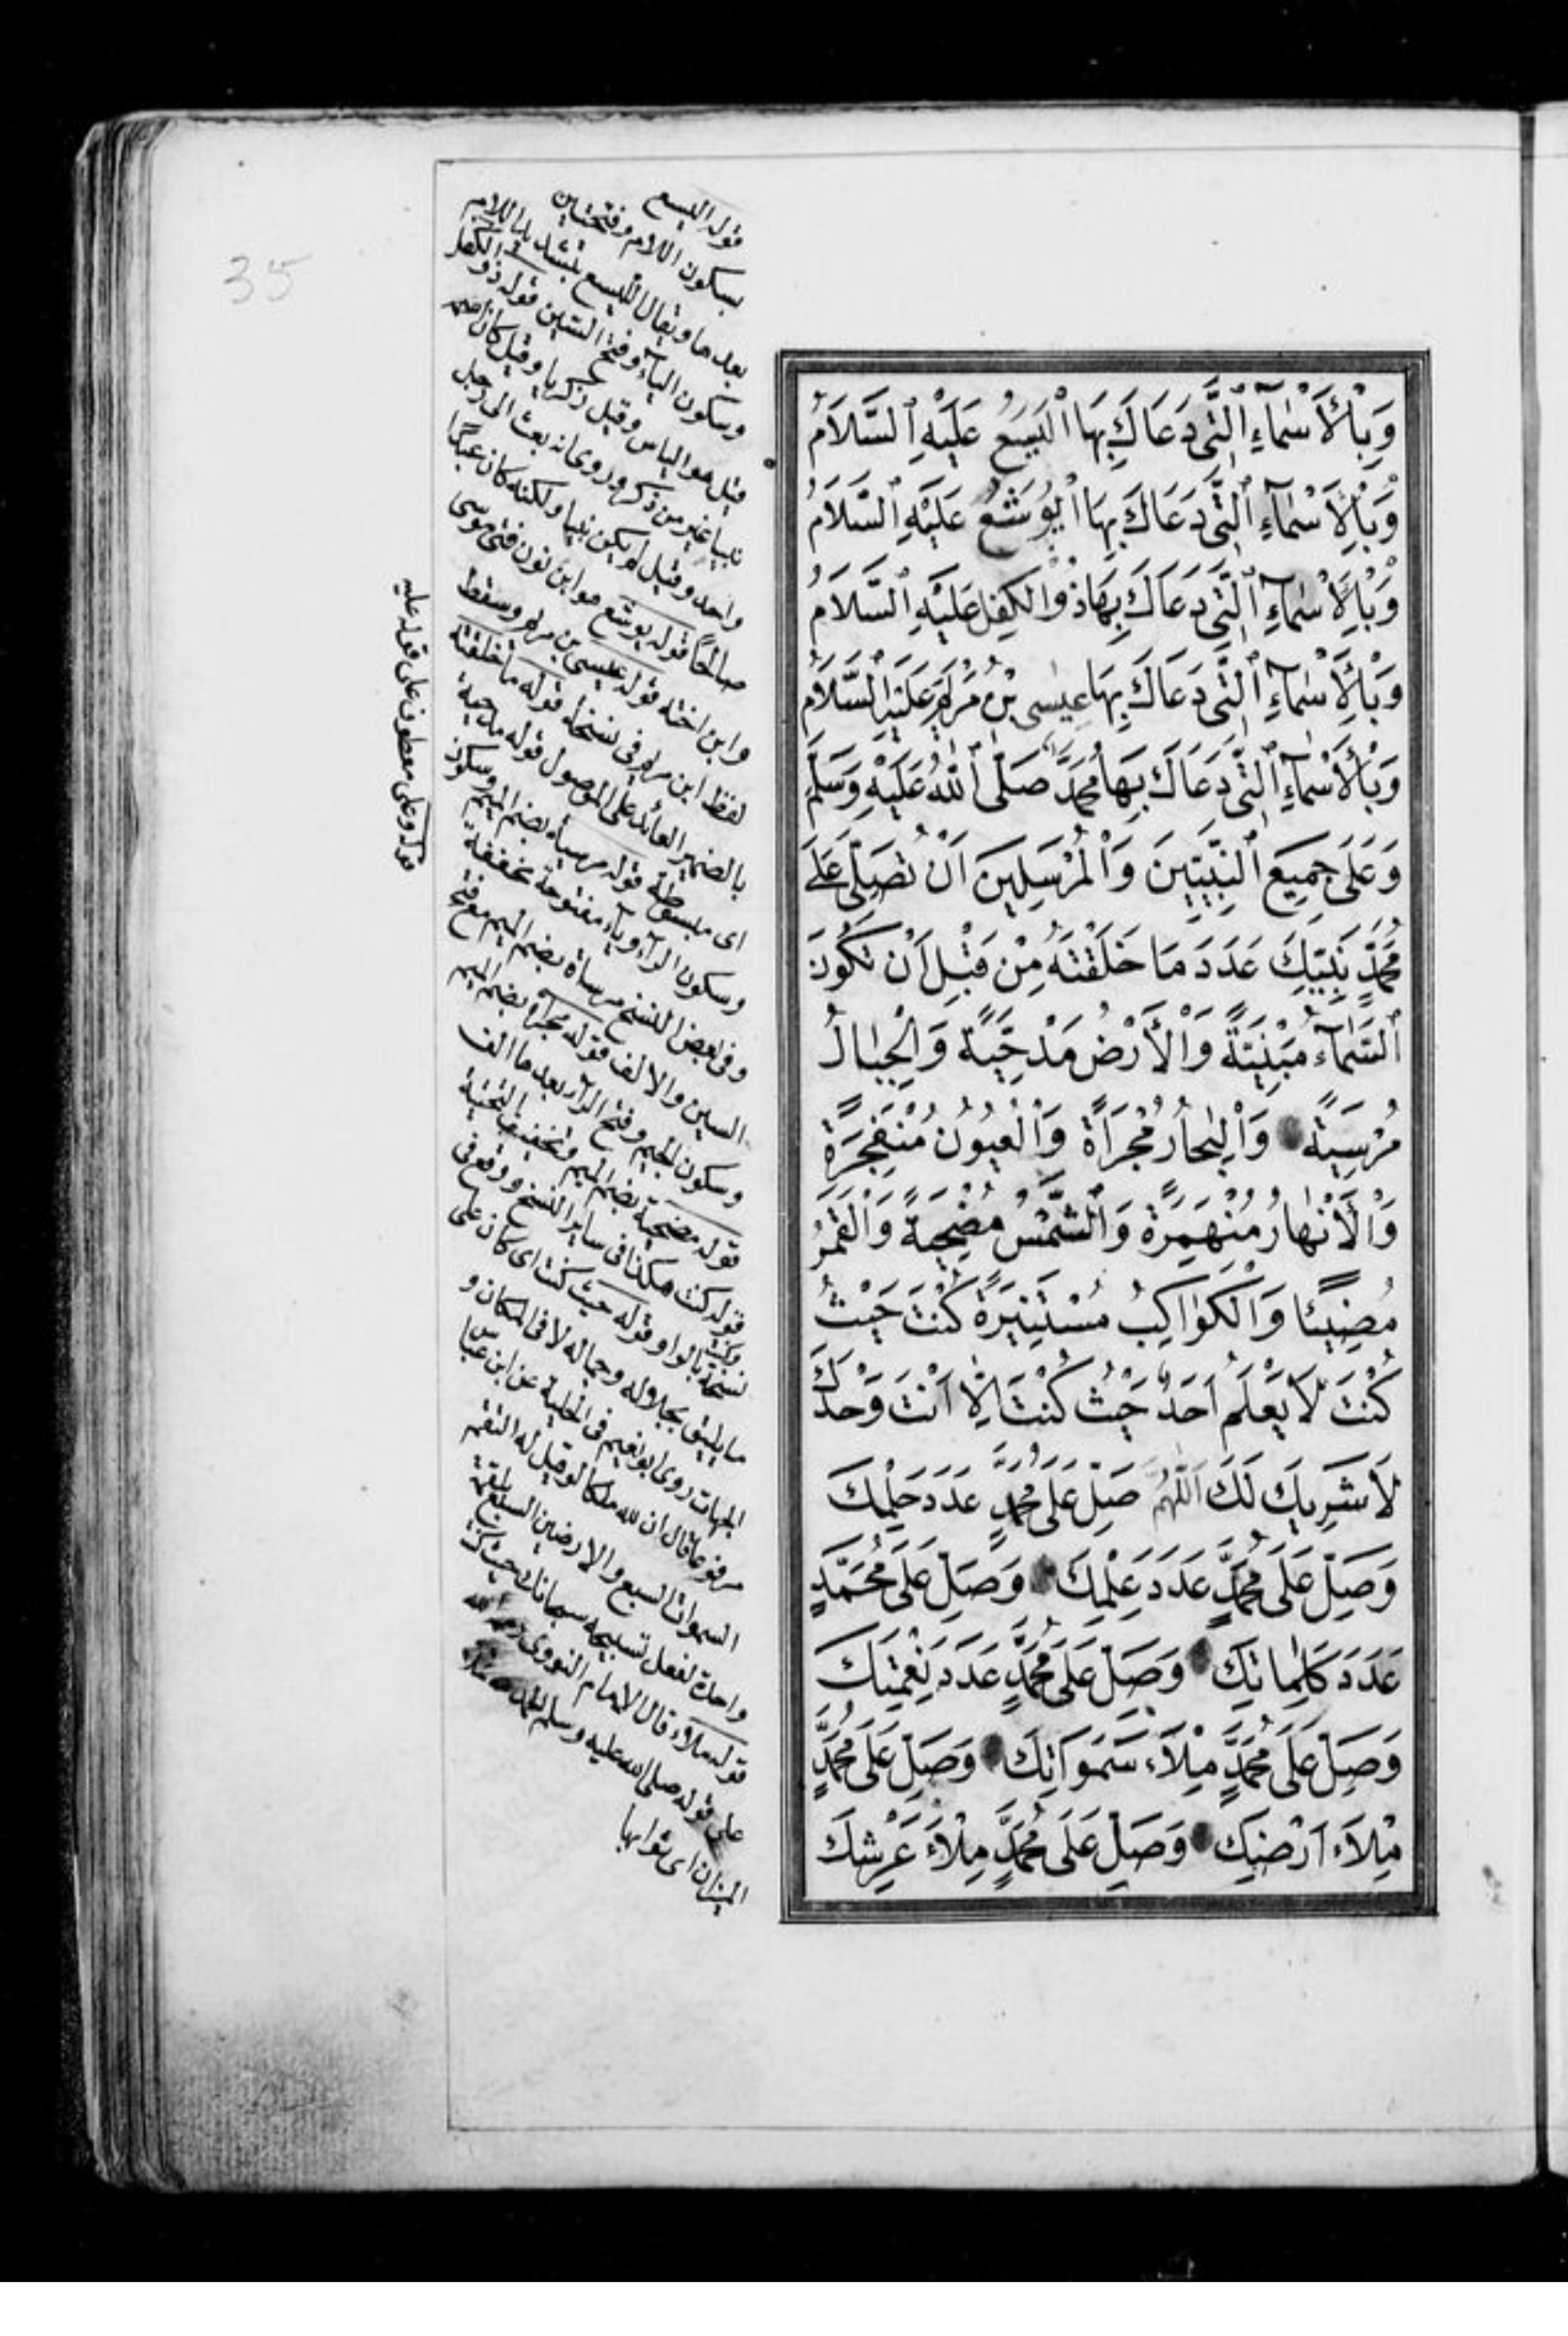 وَبِالْأَسْمَآءِ الَّتِي دَعَاكَ بِهَا الْيَسَعُ عَلَيْهِ السَّلَامُ
وَبِالْأَسْمَآءِ الَّتِي دَعَاكَ بِهَا يُوشَعُ عَلَيْهِ السَّلَامُ
وَبِالْأَسْمَآءِ الَّتِي دَعَاكَ بِهَا ذُوالْكِفْلِ عَلَيْهِ السَّلَامُ
وَبِالْأَسْمَآءِ الَّتِي دَعَاكَ بِهَا عِيسَى بْنُ مَرْيَمَ عَلَيْهِ السَّلَامُ
وَبِالْأَسْمَآءِ الَّتِي دَعَاكَ بِهَا مُحَمَّدٌ صَلَّى اللّٰهُ عَلَيْهِ وَسَلَّمَ
وَعَلَى جَمِيعِ النَّبِيِّينَ وَالْمُرْسَلِينَ اَنْ تُصَلِّيَ عَلَى
مُحَمَّدٍ نَبِيِّكَ عَدَدَ مَا خَلَقْتَهُ مِنْ قَبْلِ اَنْ تَكُونَ
السَّمَآءُ مَبْنِيَّةً وَالْأَرْضُ مَدْحِيَّةً وَالْجِبَالُ
مُرْسِيَةً وَالْبِحَارُ مُجْرَاةً وَالْعُيُونُ مُنْفَجِرَةً
وَالْأَنْهَارُ مُنْهَمِرَةً وَالشَّمْسُ مُضْحِيَةً وَالْقَمَرُ
مُضِيئًا وَالْكَوَاكِبُ مُسْتَنِيرَةً كُنْتَ حَيْثُ
كُنْتَ لَا يَعْلَمُ اَحَدٌ حَيْثُ كُنْتَ اِلَّا اَنْتَ وَحْدَكَ
لَا شَرِيكَ لَكَ اَللّٰهُمَّ صَلِّ عَلَى مُحَمَّدٍ عَدَدَ حِلْمِكَ
وَصَلِّ عَلَى مُحَمَّدٍ عَدَدَ عِلْمِكَ وَصَلِّ عَلَى مُحَمَّدٍ
عَدَدَ كَلِمَاتِكَ وَصَلِّ عَلَى مُحَمَّدٍ عَدَدَ نِعْمَتِكَ
وَصَلِّ عَلَى مُحَمَّدٍ مِلْاَءَ سَمَوَاتِكَ وَصَلِّ عَلَى مُحَمَّدٍ
مِلْاَءَ اَرْضِكَ وَصَلِّ عَلَى مُحَمَّدٍ مِلْاَءَ عَرْشِكَ
قوله اليسع
بسكون اللام وفتحتين
بعدها ويقال الليسع بتشديد اللام
وسكون الياء وفتح السين قوله ذو الكفل
قيل هو الياس وقيل زكريا وقيل كان
نبيا غير من ذكر وروي انه بعث الى رجل
واحد وقيل لم يكن نبيا ولكنه كان عبدا
صالحا قوله يوشع هو ابن نون فتى موسى
وابن اخته قوله عيسى بن مريم وسقط
لفظ ابن مريم في نسخة قوله ما خلقته
بالضمير العائد على الموصول قوله مدحية
اي مبسوطة قوله مرسية بضم الميم وسكون
وسكون الراء وياء مفتوحة مخففة
وفي بعض النسخ مرساة بضم الميم وفتح
السين والالف قوله مجراة بضم الميم
وسكون الجيم وفتح الراء بعدها الف
قوله مضحية بضم الميم وتخفيف التحتية
قوله كنت هكذا في سائر النسخ ووقع في
نسخة وكنت بالواو قوله حيث كنت اي كان على
ما يليق بجلاله وجماله لا في المكان و
الجهات روى ابو نعيم في الحلية عن ابن عباس
مرفوعا قال ان لله ملكا لو قيل له التقم
السموات السبع والارضين السبع بلقمة
واحدة لفعل تسبيحه سبحانك حيث كنت
قوله ملاء قال الامام النووي رحمه الله
على قوله صلى الله عليه وسلم الحمد لله تملاء
الميزان اي ثوابها
قوله وعلى معطوف على قوله عليه
35